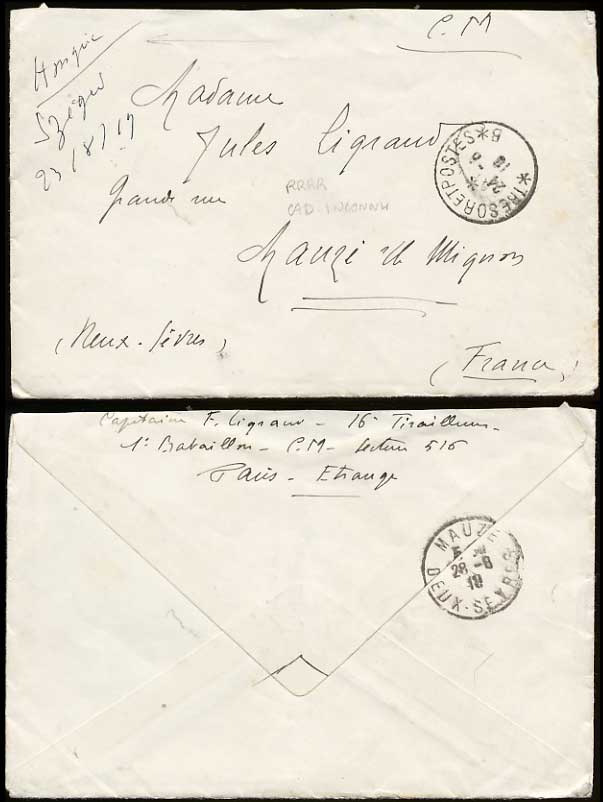 C. M
Hongrie
Szeged
23/8/19
Madame
Jules Ligraud
Grande rue
RRRR
CAD INCONNU
Mauzé s/le Mignon
(Deux-Sèvres)
(France)
*TRESOR ET POSTES*B
24 -8
19
Capitaine F. Ligraud - 16e Tirailleurs -
1er Bataillon - C.M - Secteur 516
Paris - Etranger
MAUZE
28 -8
19
DEUX-SEVRES